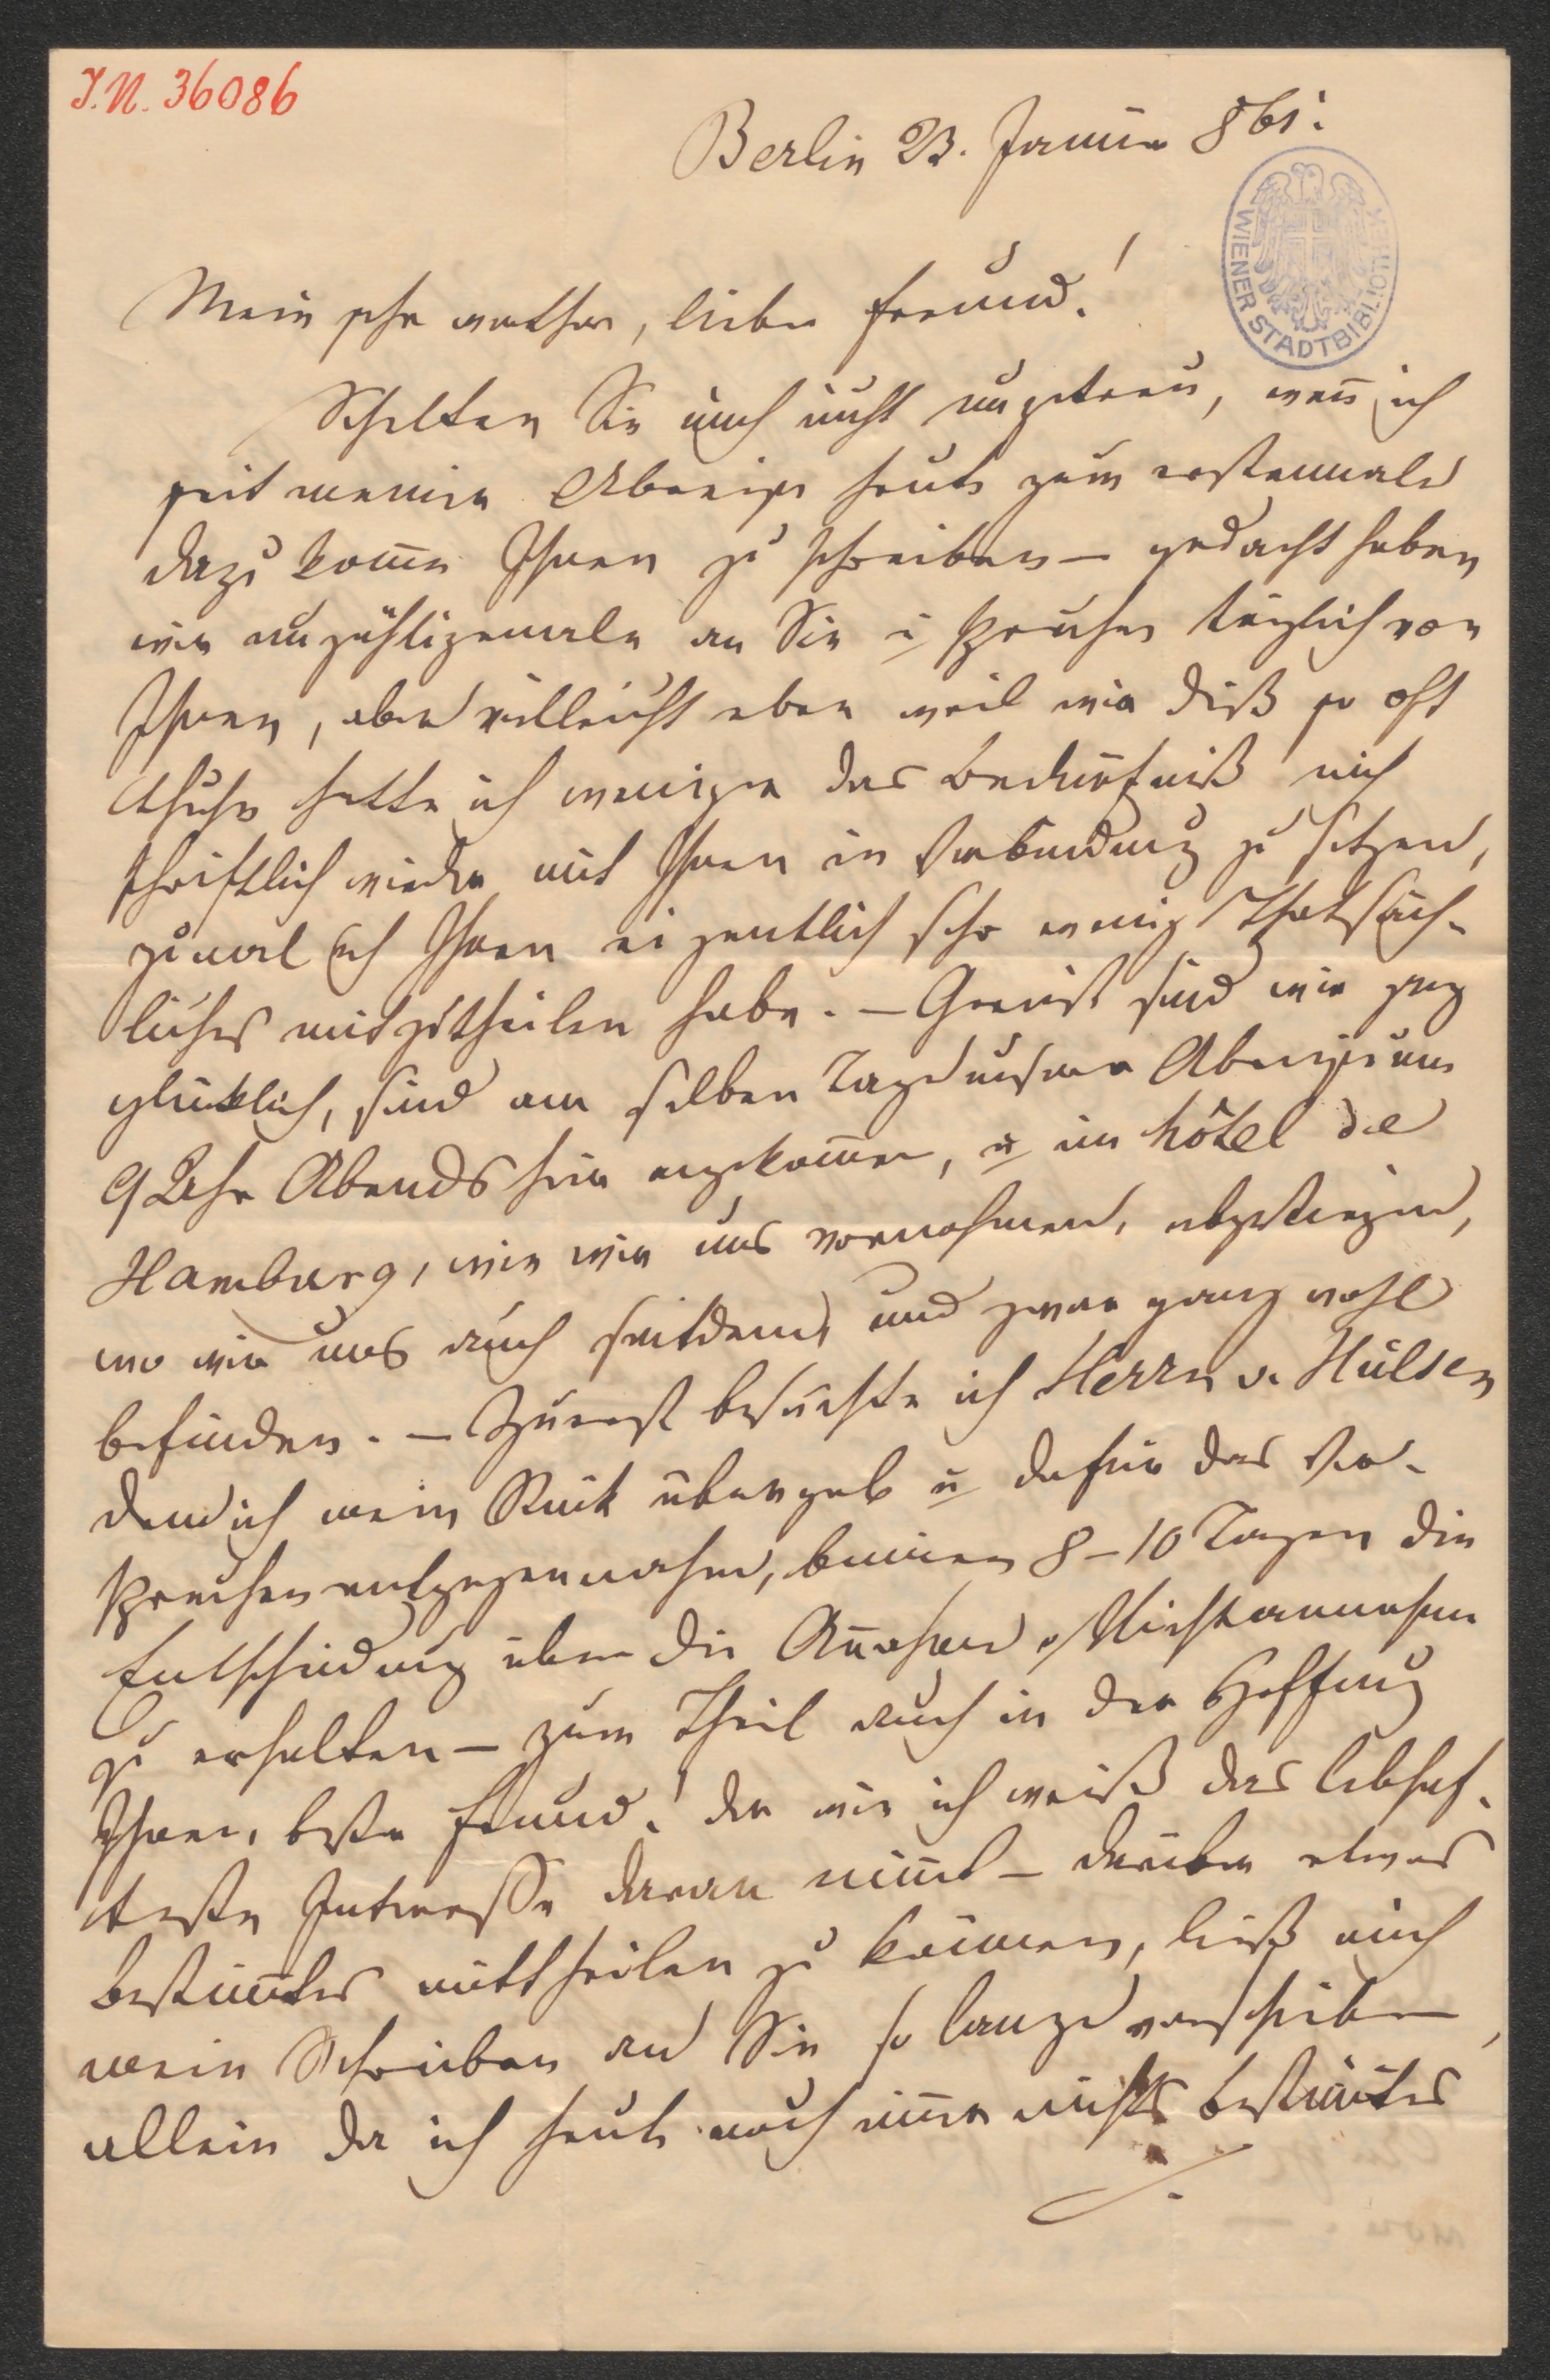 J.N. 36086
Berlin 23. Januar 861.
WIENER STADTBIBLIOTHEK
Mein sehr werther, lieber Freund!
Schelten Sie mich nicht ungetreu, weñ ich
seit meiner Abreise heute zum erstenmale
dazu kom̃e Ihnen zu schreiben – gedacht haben
wir unzähligemale an Sie u sprechen täglich von
Ihnen, aber villeicht eben weil wir diß so oft
thuhn hatte ich weniger das Bedürfniß mich
schriftlich wieder mit Ihnen in Verbindung zu setzen,
zumal ich Ihnen eigentlich sehr wenig Thatsäch-
liches mitzutheilen habe. – Gereist sind wir ganz
glücklich, sind am selben Tage unserer Abreise um
9 Uhr Abends hier angekom̃en, u im hôtel de
Hamburg, wie wir uns vornahmen, abgestiegen,
wo wir uns auch seitdem, und zwar ganz wohl
befinden. – Zuerst besuchte ich Herrn v. Hülsen
dem ich mein Stück übergab u dafür das Ver-
sprechen entgegennahm, binnen 8–10 Tagen die
Entscheidung über die Añahme o/ Nichtannahme
zu erhalten – zum Theil auch in der Hoffnung
Ihnen, bester Freund! der wie ich weiß das lebhaf-
teste Interesse daran nim̃t – darüber etwas
bestim̃tes mittheilen zu können, ließ mich
mein Schreiben an Sie so lange verschieben,
allein da ich heute noch im̃er nichts bestim̃tes